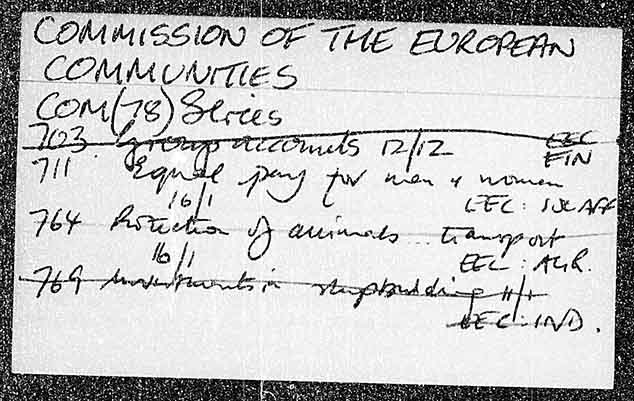 COMMISSION OF THE EUROPEAN
COMMUNITIES
COM(78) Series
703 Group accounts 12/12 EEC
FIN
711 Equal pay for men & women
16/1 EEC: SOC AFF
764 Protection of animals .. transport
16/1 EEC: AGR.
769 Investments in shipbuilding 11/1
EEC: IND.